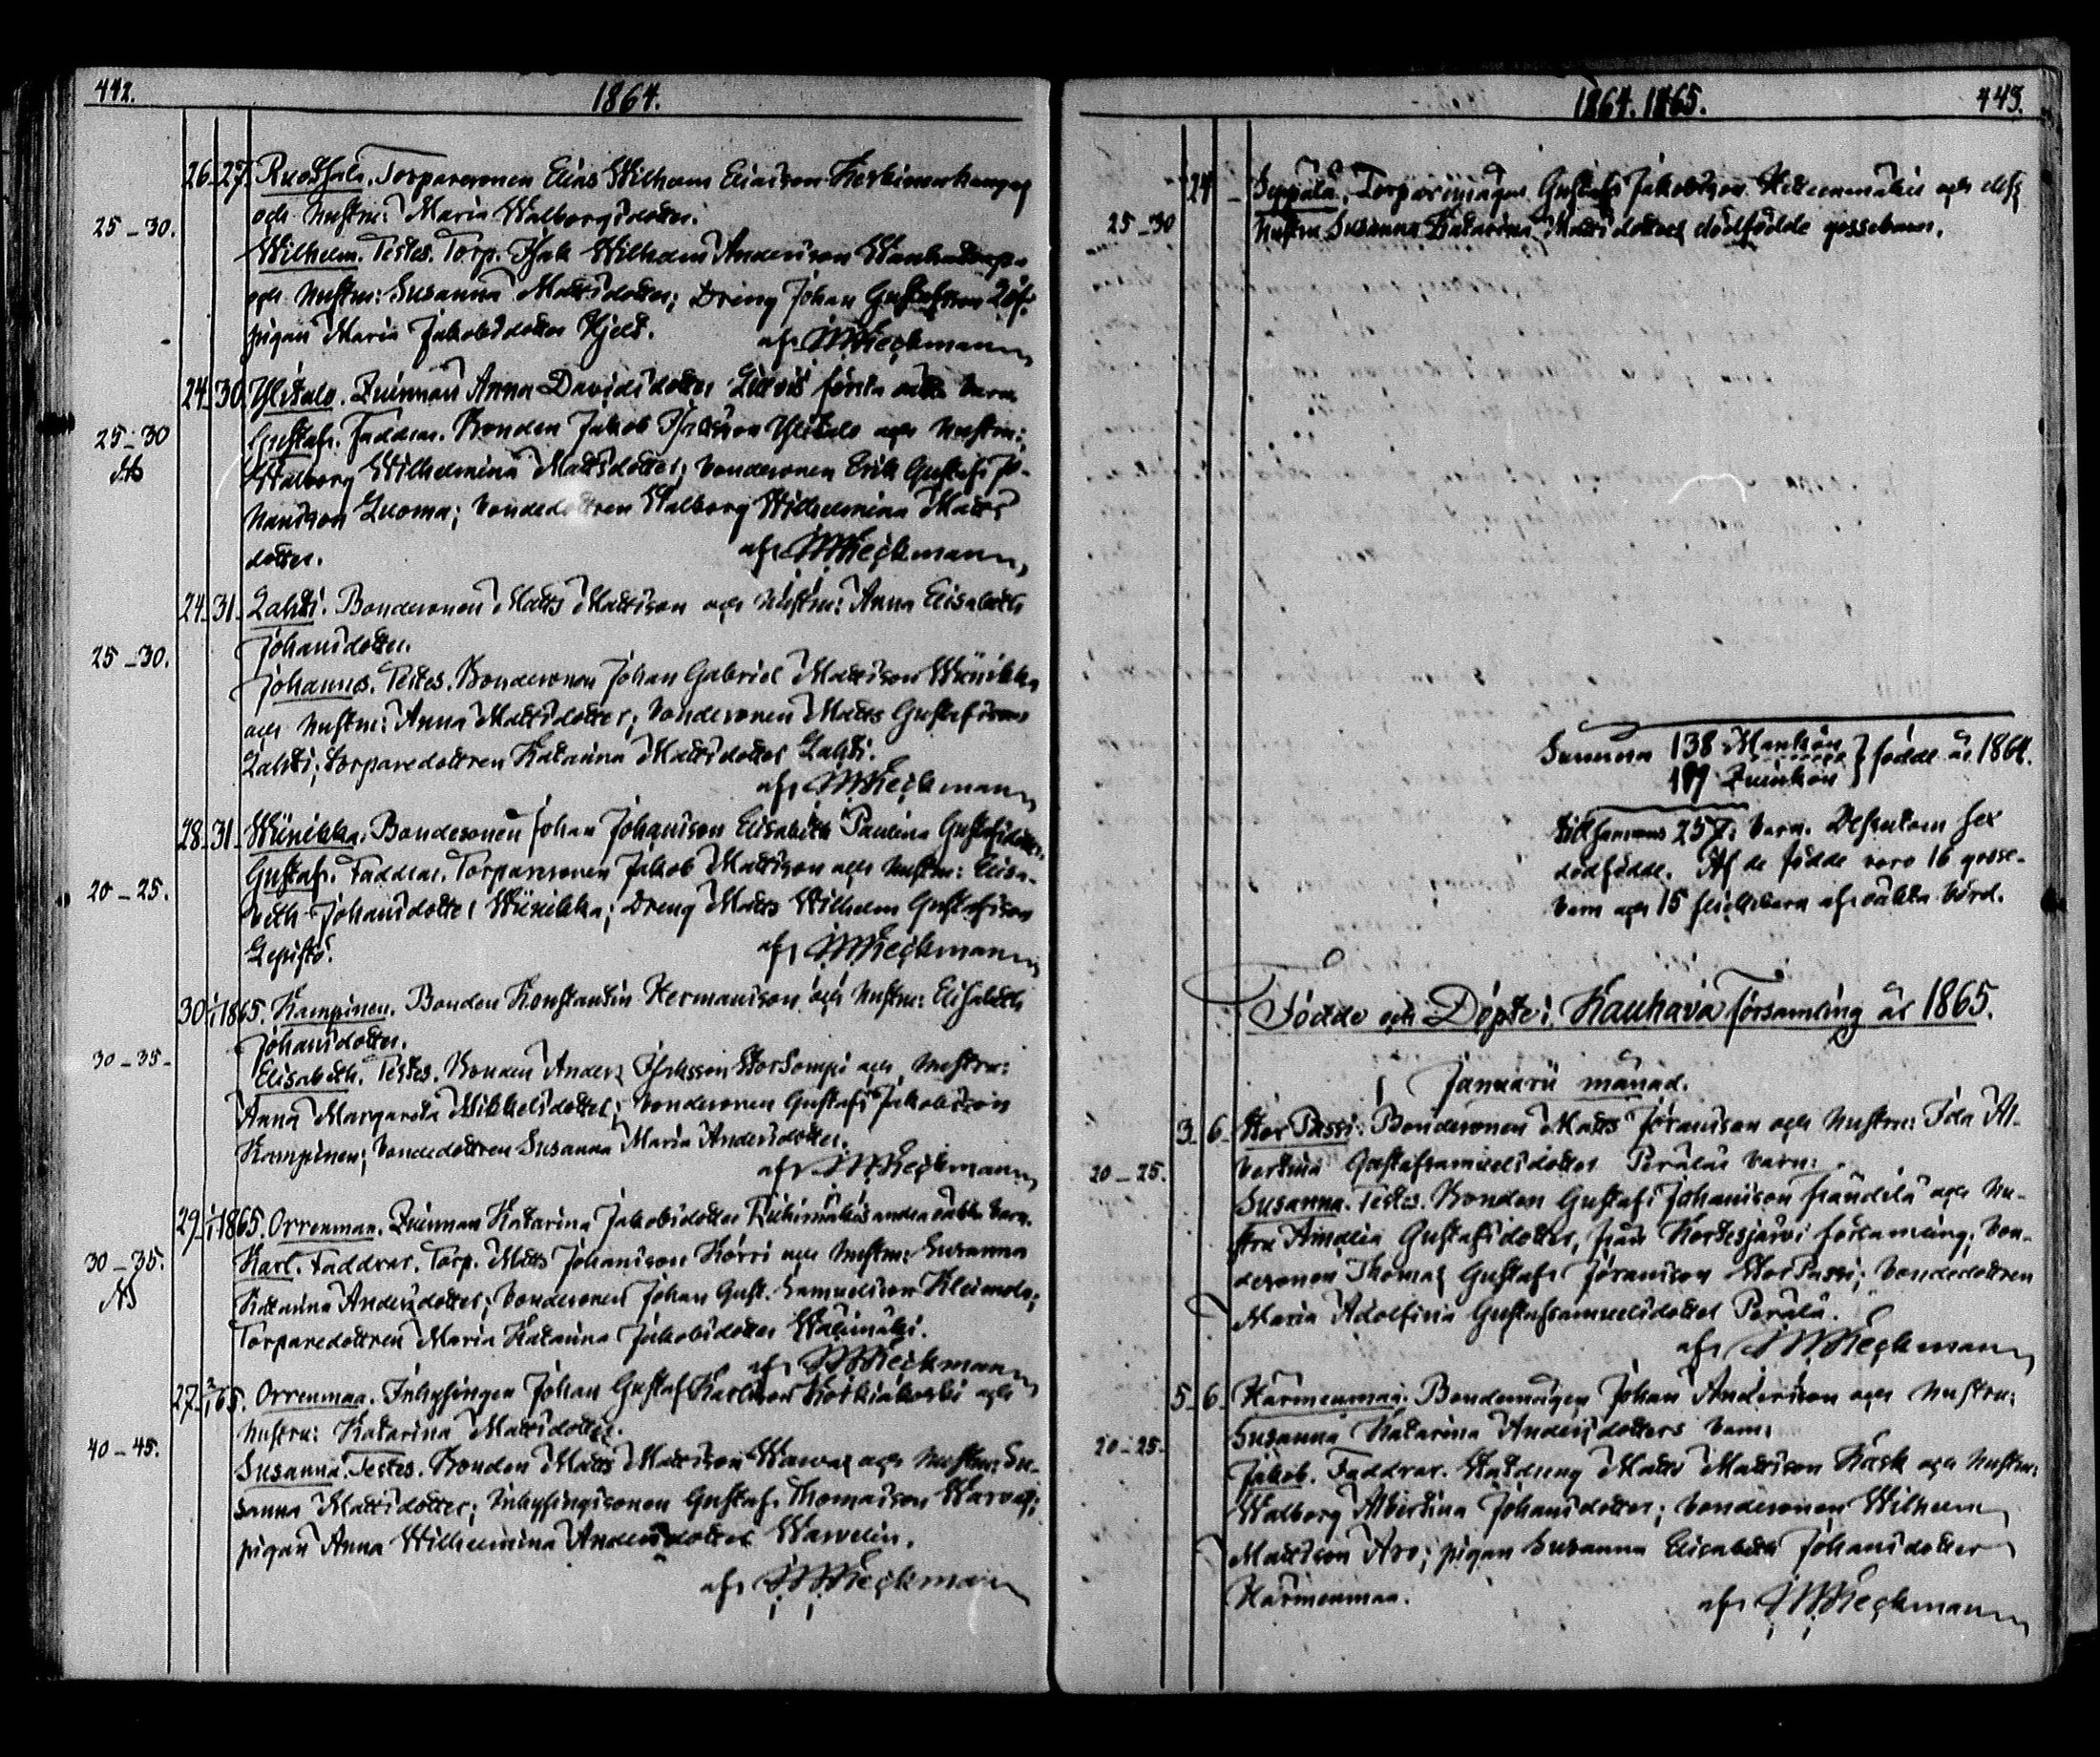 442.
1864.
26 27 Ruotsala. Torparesonen Elias Wilhelm Eliasson
och hustru: Maria Walborgsdotter.
25-30.
Wilhelm. Testes. Torp. Isak Wilhelm Andersson
och hustru: Susanna Mattsdotter; Dreng Johan Gustafsson
pigan Maria Jakobsdotter Hjelt.
af JWReckmann
24 30 Ylitalo. Qvinnan Anna Davidsdotter första oäkta barn
25-30
Gustaf. Faddrar. Bonden Jakob Isaksson Ylitalo och hustru:
Walborg Wilhelmina Mattsdotter; bondesonen Erik Gustaf Jo-
hansson Luoma; bondedottren Walborg Wilhelmina Matts
dotter.
af JWReckmann
24 31 Lahti. Bondesonen Matts Mattsson och hustru: Anna Elisabeth
Johansdotter.
25-30.
Johannes. Testes. Bondesonen Johan Gabriel Mattsson Wiinikka
och hustru: Anna Mattsdotter; bondesonen Matts Gustafsson
Lahti; torparedottren Katarina Mattsdotter Lahti.
af JWReckmann
28 31 Wiinikka. Bondesonen Johan Johansson Elisabeth Paulina Gustafsdotter
Gustaf. Faddrar. Torparesonen Jakob Mattsson och hustru: Elisa-
20-25.
beth Johansdotter Wiinikka; Dreng Matts Wilhelm Gustafsson
Lepistö.
af JWReckmann
30 1/1 1865. Kampinen. Bonden Konstantin Hermansson och hustru: Elisabeth
Johansdotter.
30-35-
Elisabeth. Testes. Bonden Anders Isaksson StorSompi och hustru:
Anna Margareta Mikkelsdotter; bondesonen Gustaf Jakobsson
Kampinen; bondedottren Susanna Maria Andersdotter.
af JWReckmann
29 1/1 1865. Orrenmaa. Qvinnan Katarina Jakobsdotter Riihimäkis andra oäkta barn.
30-35.
Karl. Faddrar. Torp. Matts Johansson Körri och hustru: Susanna
Katarina Andersdotter; bondesonen Johan Gust. Samuelsson Kleimola;
Torparedottren Maria Katarina Jakobsdotter Wälimäki.
af JWReckmann
27 65. Orrenmaa. Inhysingen Johan Gustaf Karlsson Koskiakoski och
hustru: Katarina Mattsdotter.
40-45.
Susanna. Testes. Bonden Matts Mattsson Warvas och hustru: Su-
sanna Mattsdotter; Inhysingssonen Gustaf Thomasson Warvas;
pigan Anna Wilhelmina Andersdotter Warvelin.
af JWReckmann
1864. 1865.
443.
24 Seppälä. Torparemågen Gustaf Jakobsson och dess
25-30
hustru Susanna Katarina Mattsdotters dödfödde gossebarn.
Summa 138 Mankön
119 Qvinkön
födde år 1864.
Tillsammans 257 barn. Dessutom sex
dödfödde. Af de födde voro 16 gosse-
barn och 15 flickebarn af oäkta börd.
Födde och Döpte i Kauhava församling år 1865.
Januarii månad.
3 6 Stor Passi. Bondesonen Matts Jöransson och hustru: Ida Al-
20-25.
bertina Gustafsamuelsdotter Peräläs barn:
Susanna. Testes. Bonden Gustaf Johansson Frändilä och hu-
stru Amalia Gustafsdotter, från Kortesjärvi församling; bon-
desonen Thomas Gustaf Jöransson StorPassi; bondedottren
Maria Adolfina Gustafsamuelsdotter Perälä.
af JWReckmann
5 6 Härmenmaa. Bondemågen Johan Andersson och hustru:
Susanna Katarina Andersdotters barn:
20-25.
Jakob. Faddrar. Statdreng Matts Mattsson Kask och hustru:
Walborg Albertina Johansdotter; bondesonen Wilhelm
Mattsson Aro; pigan Susanna Elisabeth Johansdotter
Härmenmaa.
af JWReckmann